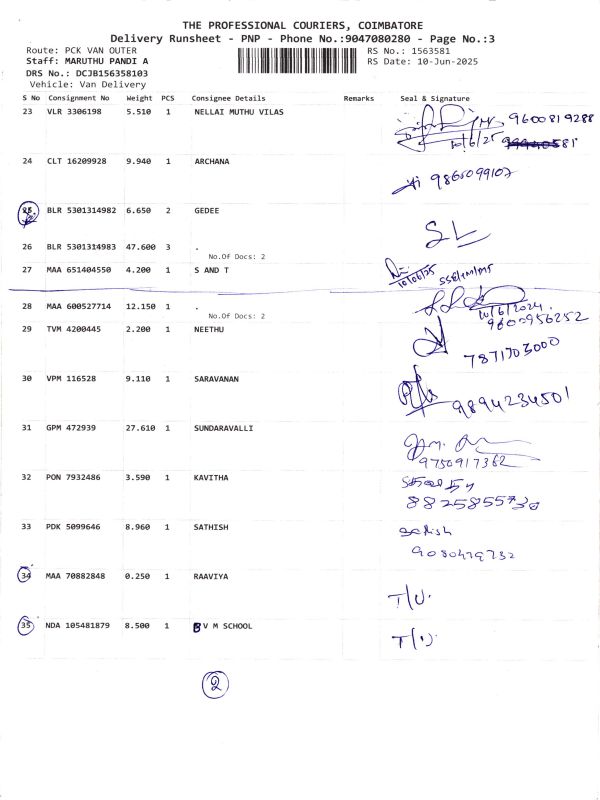 THE PROFESSIONAL COURIERS, COIMBATORE
Delivery Runsheet - PNP - Phone No.:9047080280 - Page No.:3
Route: PCK VAN OUTER RS No.: 1563581
Staff: MARUTHU PANDI A RS Date: 10-Jun-2025
DRS No.: DCJB156358103
Vehicle: Van Delivery
S No Consignment No Weight PCS Consignee Details Remarks Seal & Signature
23 VLR 3306198 5.510 1 NELLAI MUTHU VILAS 9600819288
10/6/25
24 CLT 16209928 9.940 1 ARCHANA
9865099107
25 BLR 5301314982 6.650 2 GEDEE
SL
26 BLR 5301314983 47.600 3 .
No.Of Docs: 2
27 MAA 651404550 4.200 1 S AND T
10/06/25
28 MAA 600527714 12.150 1 .
No.Of Docs: 2
10/6/2024
9600956252
29 TVM 4200445 2.200 1 NEETHU
7871703000
30 VPM 116528 9.110 1 SARAVANAN
9894234501
31 GPM 472939 27.610 1 SUNDARAVALLI
9750917362
32 PON 7932486 3.590 1 KAVITHA
8825855730
33 PDK 5099646 8.960 1 SATHISH
Satish
9080479732
34 MAA 70882848 0.250 1 RAAVIYA
T/U.
35 NDA 105481879 8.500 1 B V M SCHOOL
T/U.
2